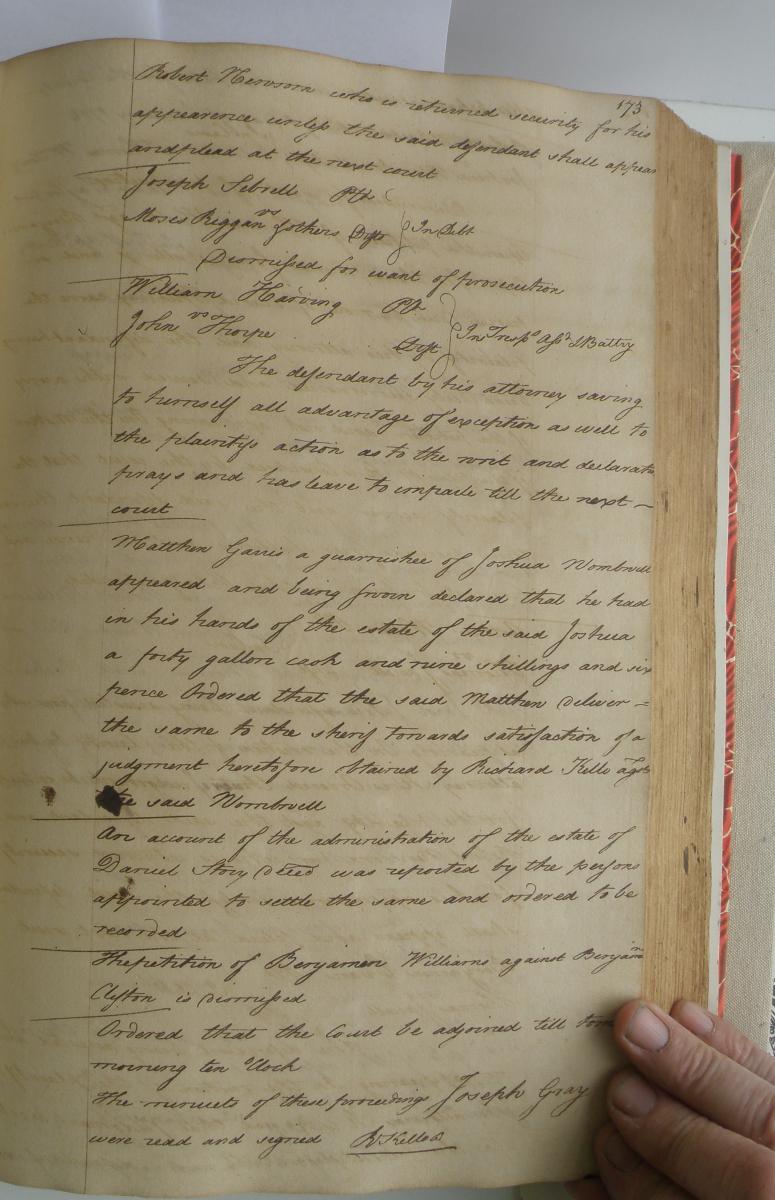 173
Robert Newsom who is returned security for his
appearence unless the said defendant shall appear
and plead at the next court
Joseph Sebrell Plt
vs
Moses Riggan & others Defts In Debt
Dismissed for want of prosecution
William Harving Plt
vs
John Thorpe Deft In Tresps Asst & Battry
The defendant by his attorney saving
to himself all advantage of exception as well to
the plaintifs action as to the writ and declarat
prays and has leave to imparle till the next
court
Matthew Garris a guarnishee of Joshua Wombwell
appeared and being sworn declared that he had
in his hands of the estate of the said Joshua
a forty gallon cask and nine shillings and six
pence Ordered that the said Matthew deliver =
the same to the sherif towards satisfaction of a
judgment heretofore obtained by Richard Kello agt
the said Wombwell
An account of the administration of the estate of
Daniel Story deced was reported by the persons
appointed to settle the same and ordered to be
recorded
The petition of Benjamen Williams against Benjamn
Clifton is dismissed
Ordered that the Court be adjoined till tom
morning ten oClock
The minuets of these proceedings Joseph Gray
were read and signed R Kello